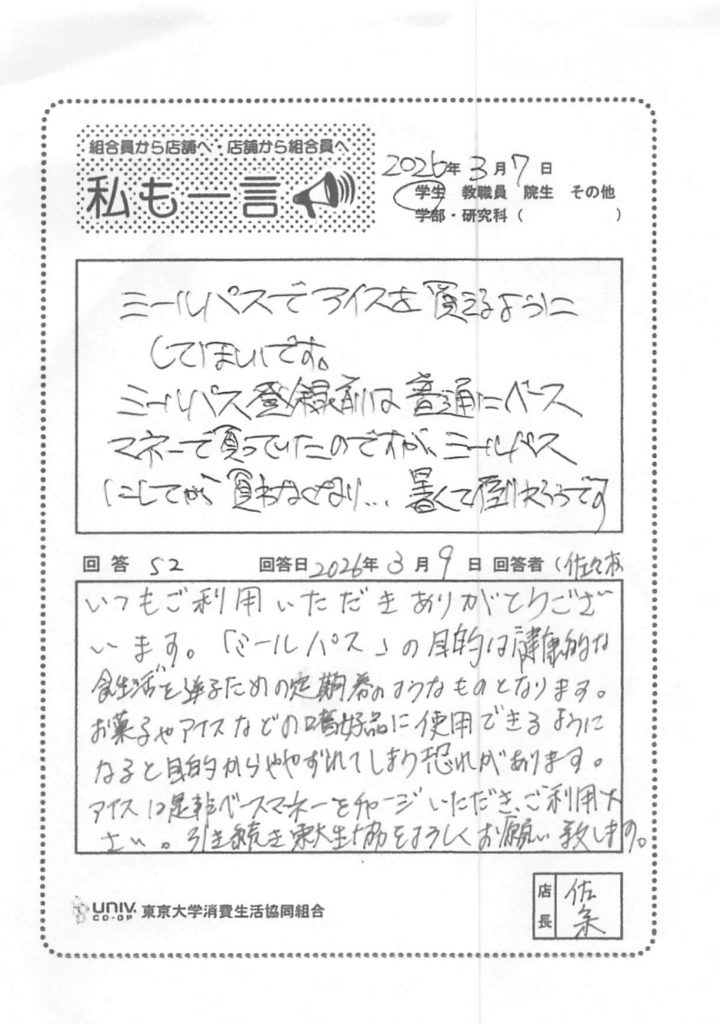 組合員から店舗へ・店舗から組合員へ
私も一言
2026年3月7日
学生 教職員 院生 その他
学部・研究科( )
ミールパスでアイスを買えるように
してほしいです。
ミールパス登録前は普通にベース
マネーで買っていたのですが、ミールパス
にしてから買わなくなり…暑くて倒れそうです
回答 52 回答日2026年3月9日 回答者(佐々木
いつもご利用いただきありがとうござ
います。「ミールパス」の目的は健康的な
食生活を送るための定期券のようなものとなります。
お菓子やアイスなどの嗜好品に使用できるように
なると目的からややずれてしまう恐れがあります。
アイスは是非ベースマネーをチャージいただき、ご利用下
さい。引き続き東大生協をよろしくお願い致します。
UNIV. CO-OP 東京大学消費生活協同組合
店長 佐